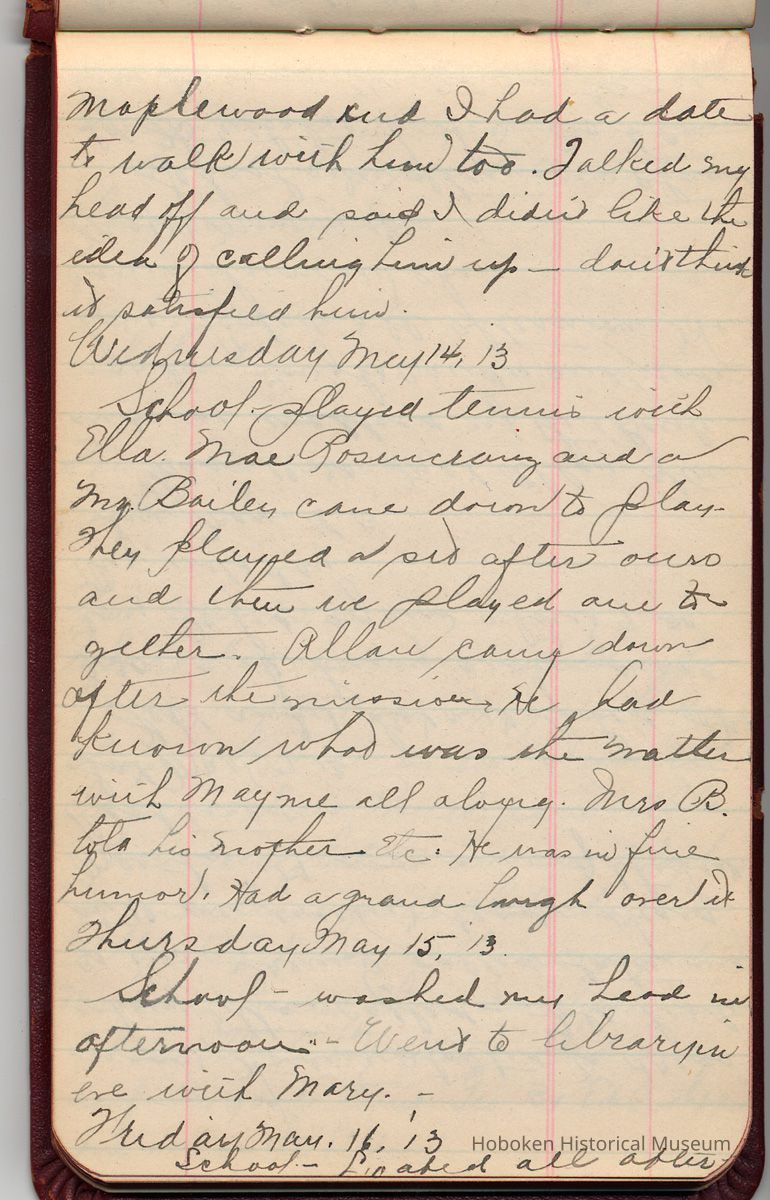 Maplewood and I had a date
to walk with him too. Talked my
head off and said I didn't like the
idea of calling him up — don't think
it satisfied him.
Wednesday May 14, 13
School - played tennis with
Ella. Mae Rosencranz and a
Mr. Bailey came down to play.
They played a set after ours
and then we played one to
gether. Allan came down
after the mission. He had
known what was the matter
with Mayme all along. Mrs B.
told his mother etc. He was in fine
humor. Had a grand laugh over it
Thursday May 15, 13.
School - washed my head in
afternoon - Went to library in
eve with Mary. -
Friday May. 16, '13
School - all after-
Hoboken Historical Museum